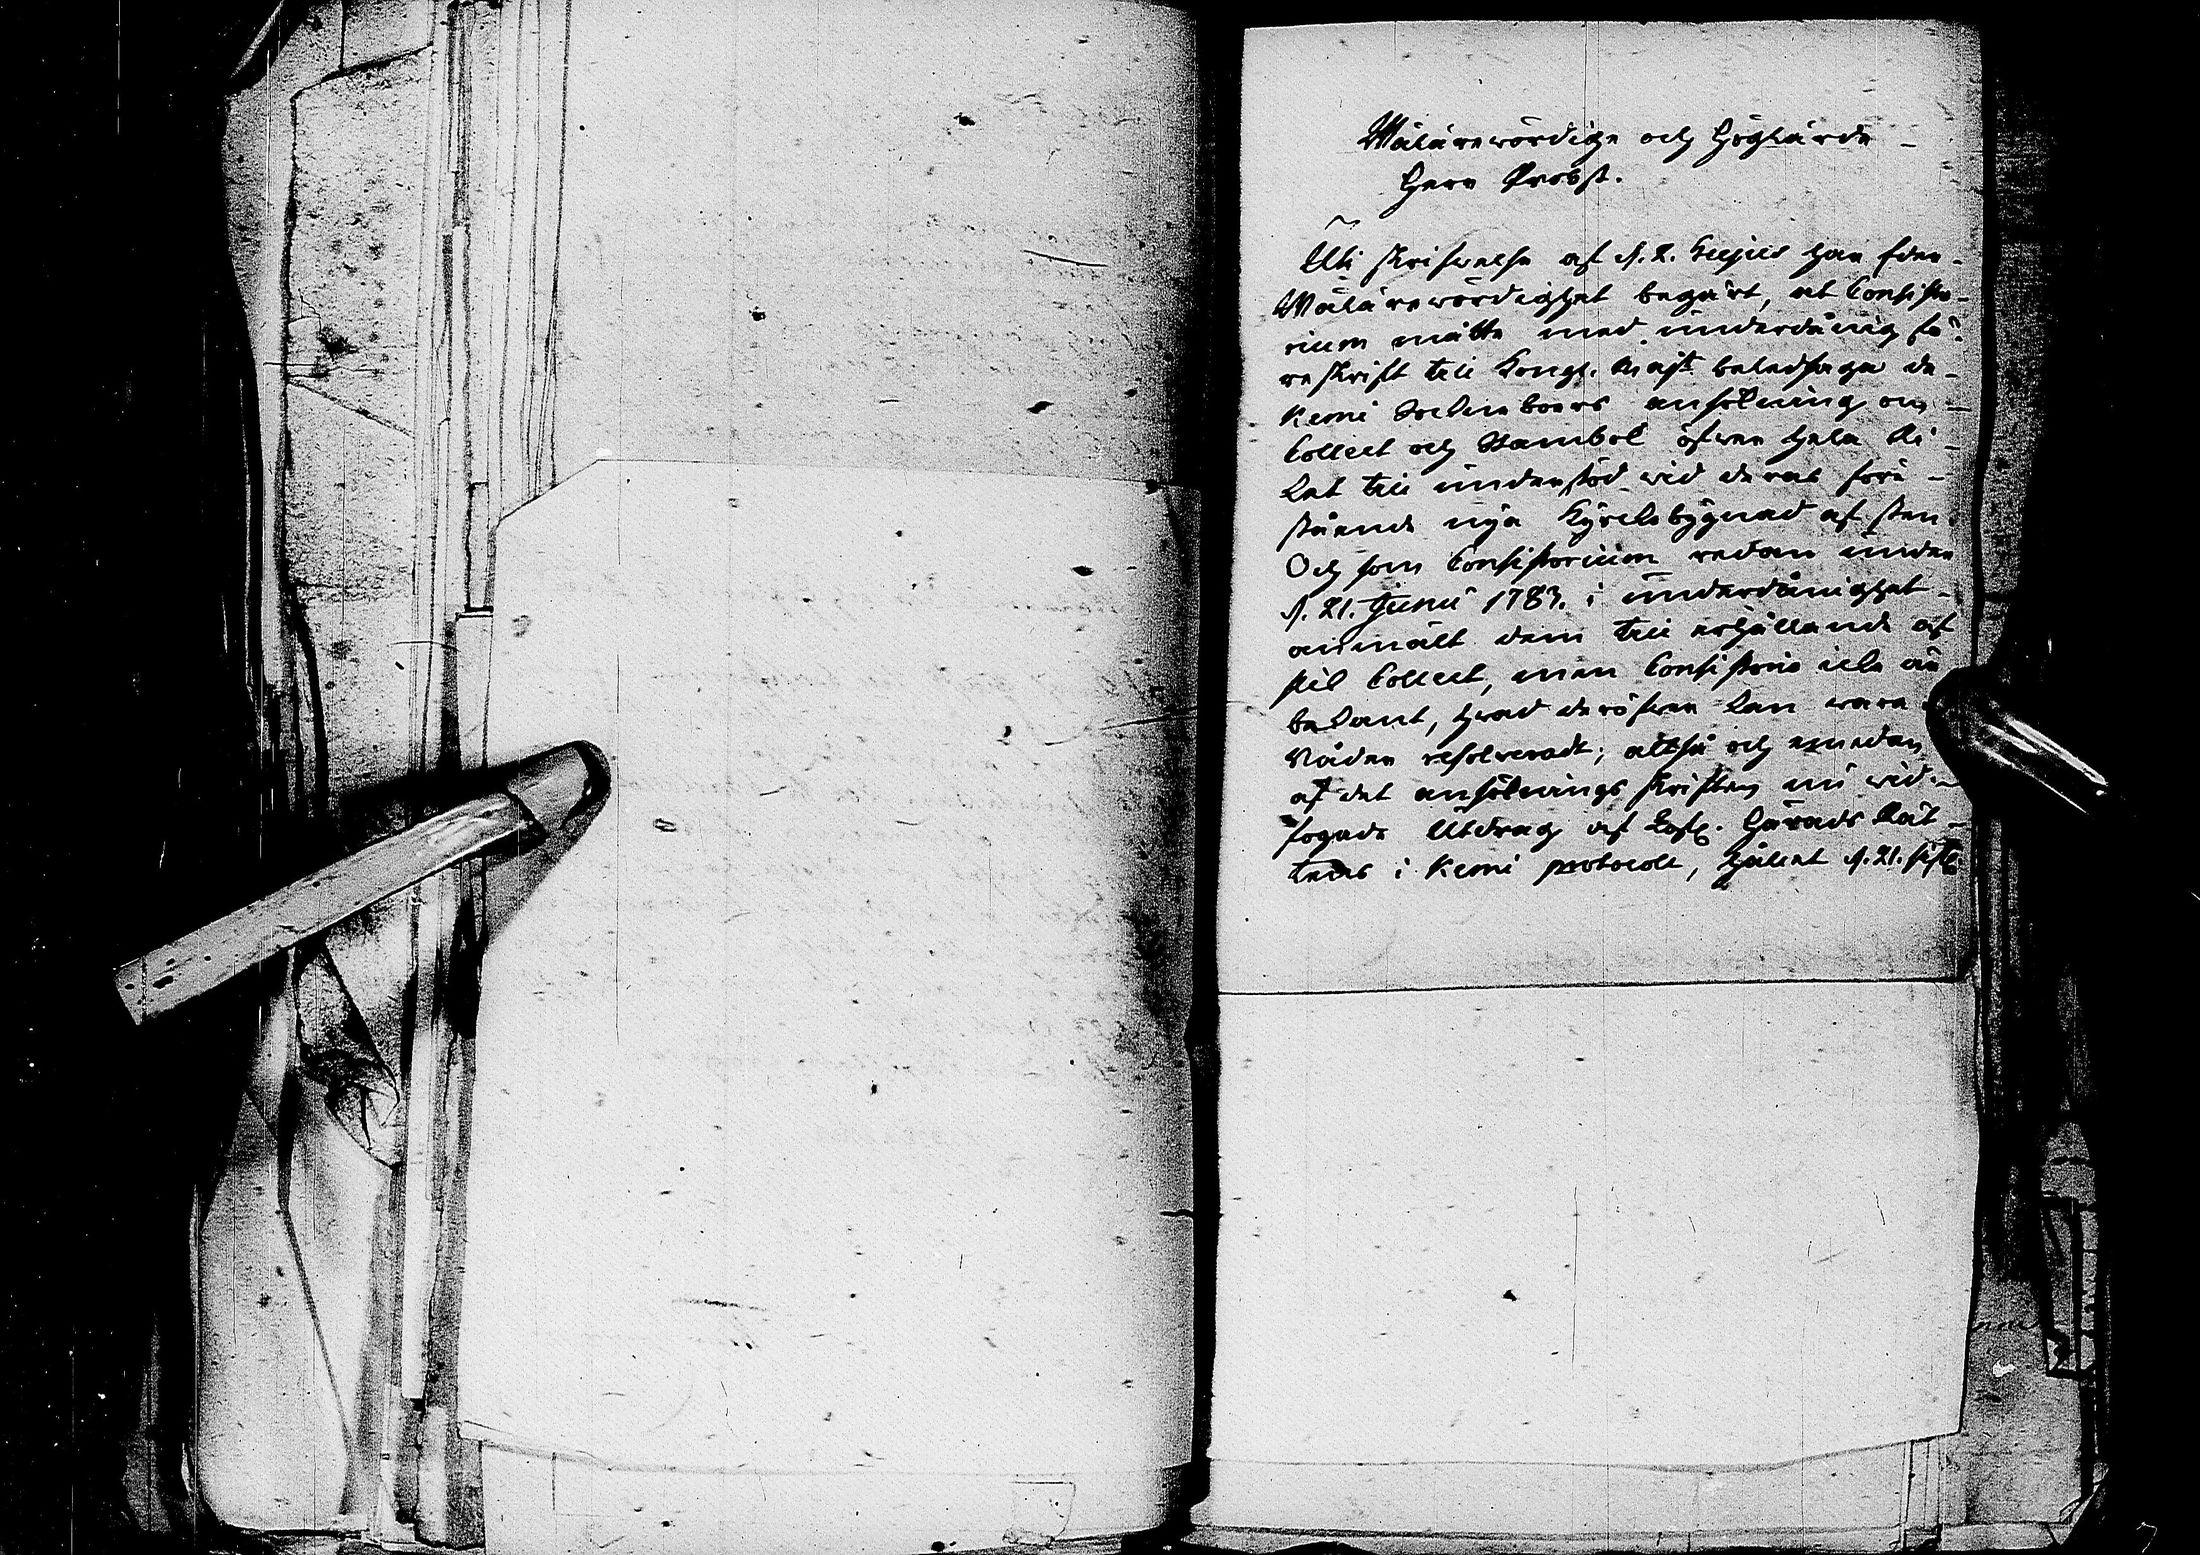 Wälärewördige och Höglärde
Herr Probst.
Uti skrifwelse af d. 2. hujus har Eder
Wälärewördighet begärt, at Consisto-
rium måtte med underdånig fö-
reskrift till Kongl. Majt beledsaga de
Kemi Sockneboers ansökning om
Collect och Stambok öfwer hela Ri-
ket till understöd wid deras före-
stående nya Kyrckobygnad af sten.
Och som Consistorium redan under
d. 21. Junii 1783. i underdånighet
anmält dem till erhållande af
slik Collect, men Consistorio icke är
bekant, hwad deröfwer kan wara i
Nåder resolveradt; altså och emedan
af det ansöknings skriften nu wid-
fogade Utdrag af Lofl. Härads Rät-
tens i Kemi protocoll, hållet d. 21. sistl.